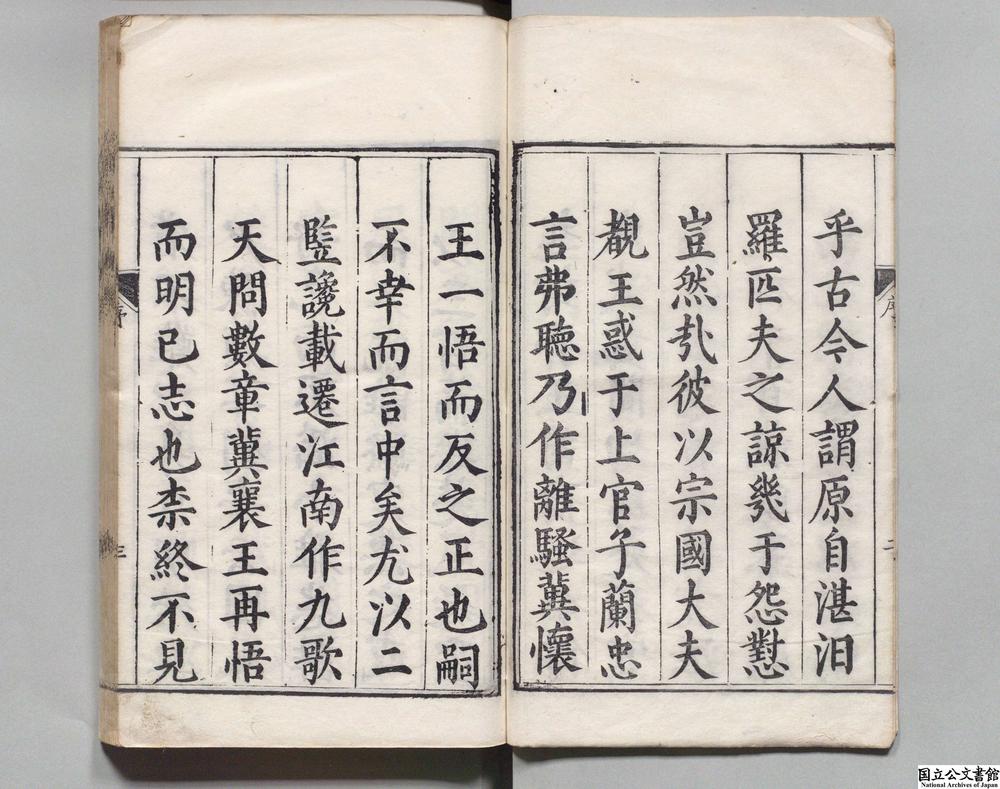 乎古今人謂原自湛汨
羅匹夫之諒幾于怨懟
豈然㢤彼以宗國大夫
覩王惑于上官子蘭忠
言弗聴乃作離騷冀懷
王一悟而反之正也嗣
不幸而言中矣尤以二
監讒載遷江南作九歌
天問數章冀襄王再悟
而明已志也柰終不見
序
二
序
三
国立公文書館
National Archives of Japan